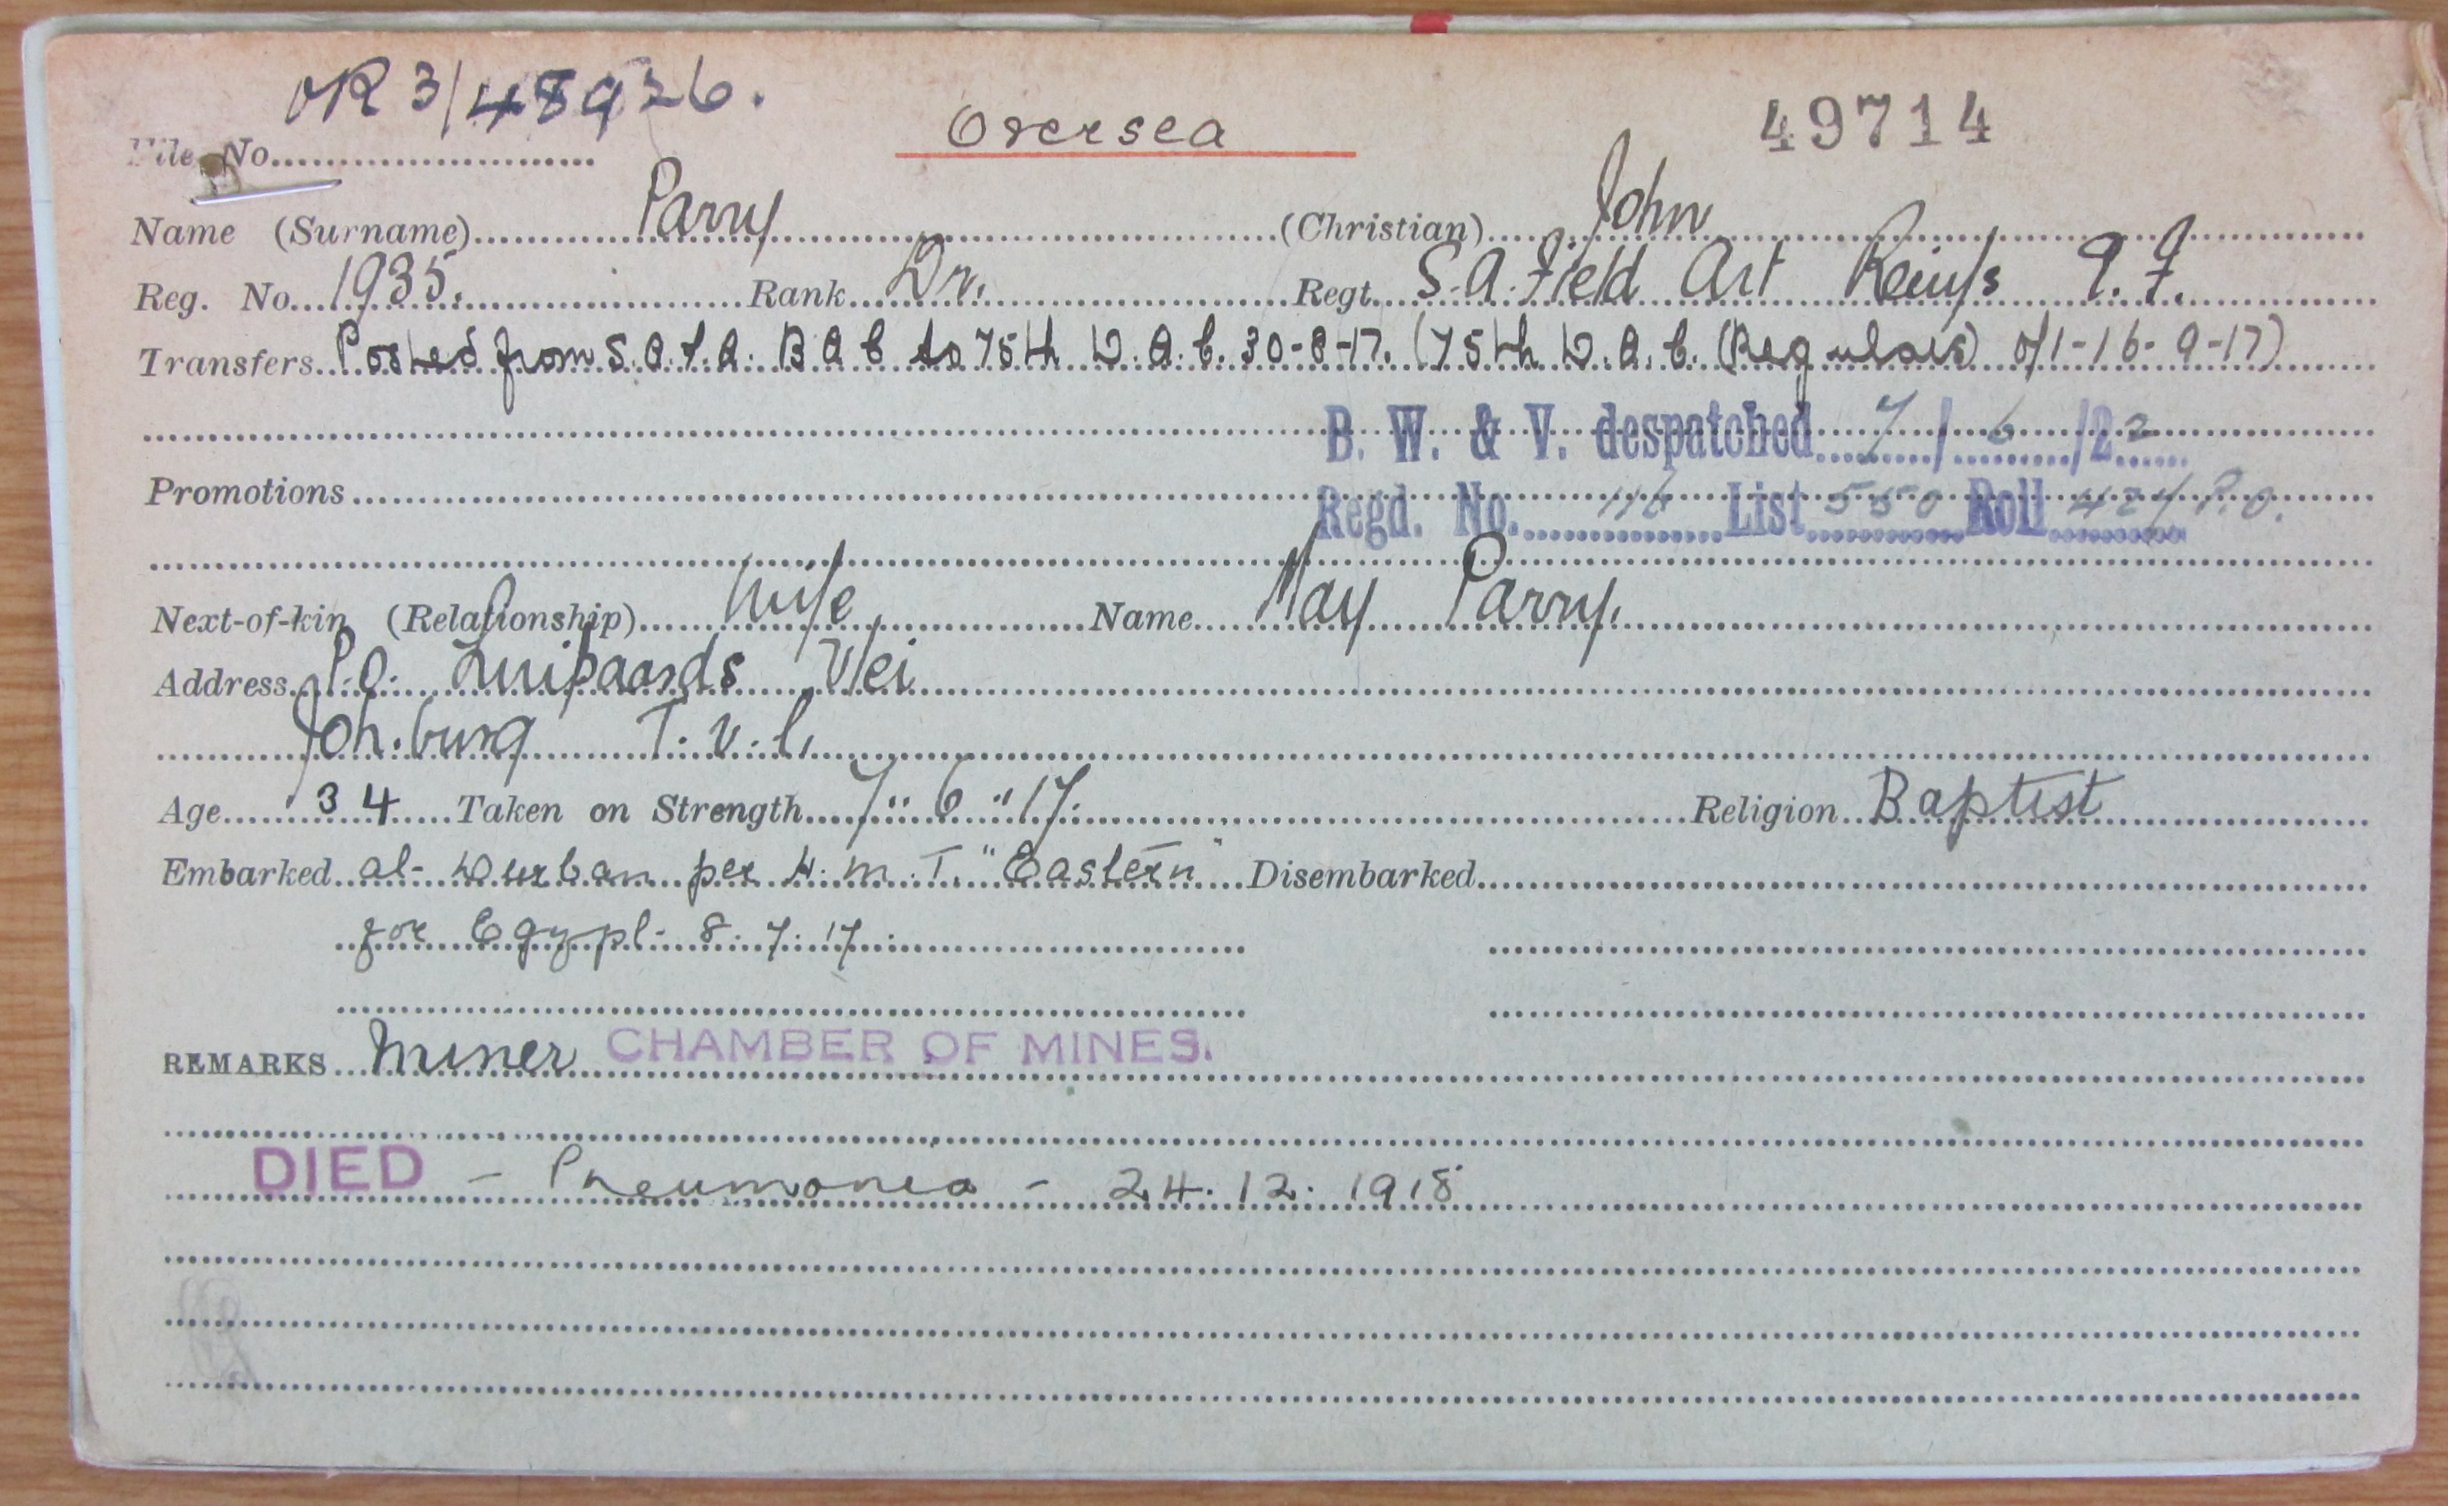 OR 3/48926.
Oversea
49714
File No
Name (Surname) Parry (Christian) John
Reg. No. 1935. Rank Dr. Regt. S.A. Field Art Reinfs 9.F.
Transfers Posted from S.A.F.A. B A C to 75th D.A.C. 30-8-17. (75th D.A.C. (Regulars) of 1-16-9-17)
B. W. & V. despatched 7/6/22
Promotions
Regd. No. 116 List 550 Roll 424 P.O.
Next-of-kin (Relationship) Wife Name May Parry.
Address P.O. Luipaards Vlei
Joh.burg T.v.l.
Age 34 Taken on Strength 7"6"17. Religion Baptist
Embarked at Durban per H.M.T. "Eastern" Disembarked
for Egypt 8.7.17.
REMARKS Miner CHAMBER OF MINES.
DIED - Pneumonia - 24.12.1918